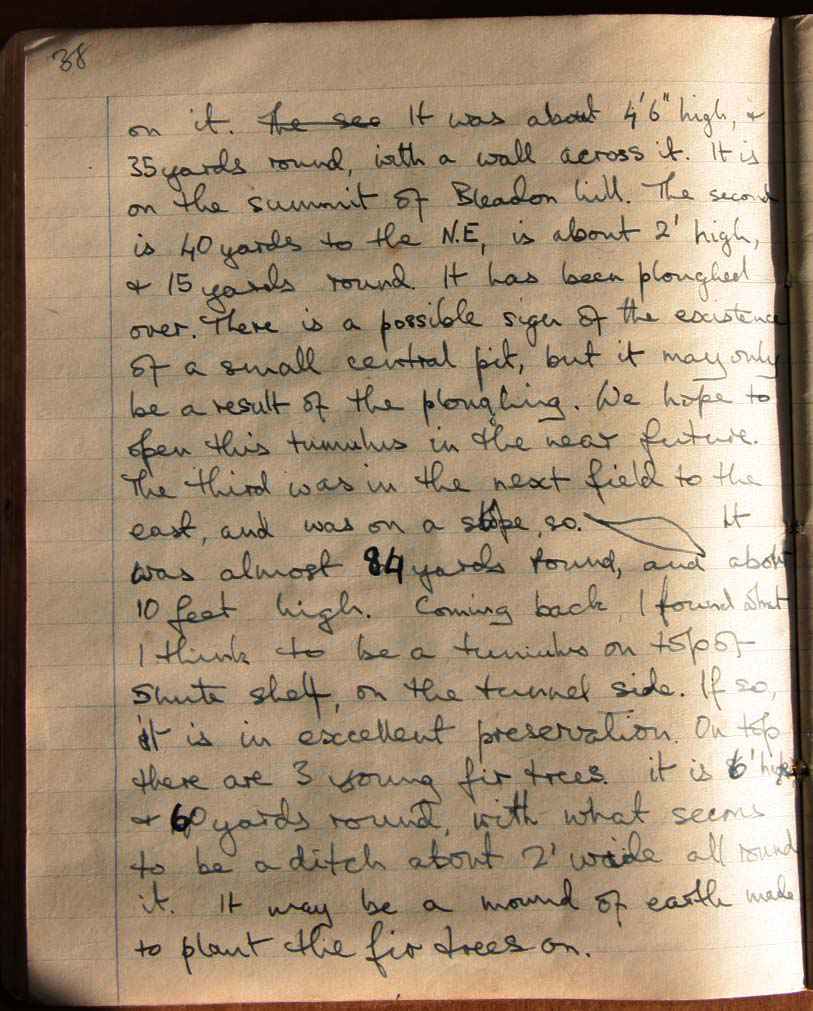 38
on it. The see It was about 4'6" high, +
35 yards round, with a wall across it. It is
on the summit of Bleadon hill. The second
is 40 yards to the N.E, is about 2' high,
+ 15 yards round. It has been ploughed
over. There is a possible sign of the existence
of a small central pit, but it may only
be a result of the ploughing. We hope to
open this tumulus in the near future.
The third was in the next field to the
east, and was on a slope, so. It
was almost 84 yards round, and about
10 feet high. Coming back, I found what
I think to be a tumulus on top of
Shute shelf, on the tunnel side. If so,
it is in excellent preservation. On top
there are 3 young fir trees. it is 6' high
+ 60 yards round, with what seems
to be a ditch about 2' wide all round
it. It may be a mound of earth made
to plant the fir trees on.